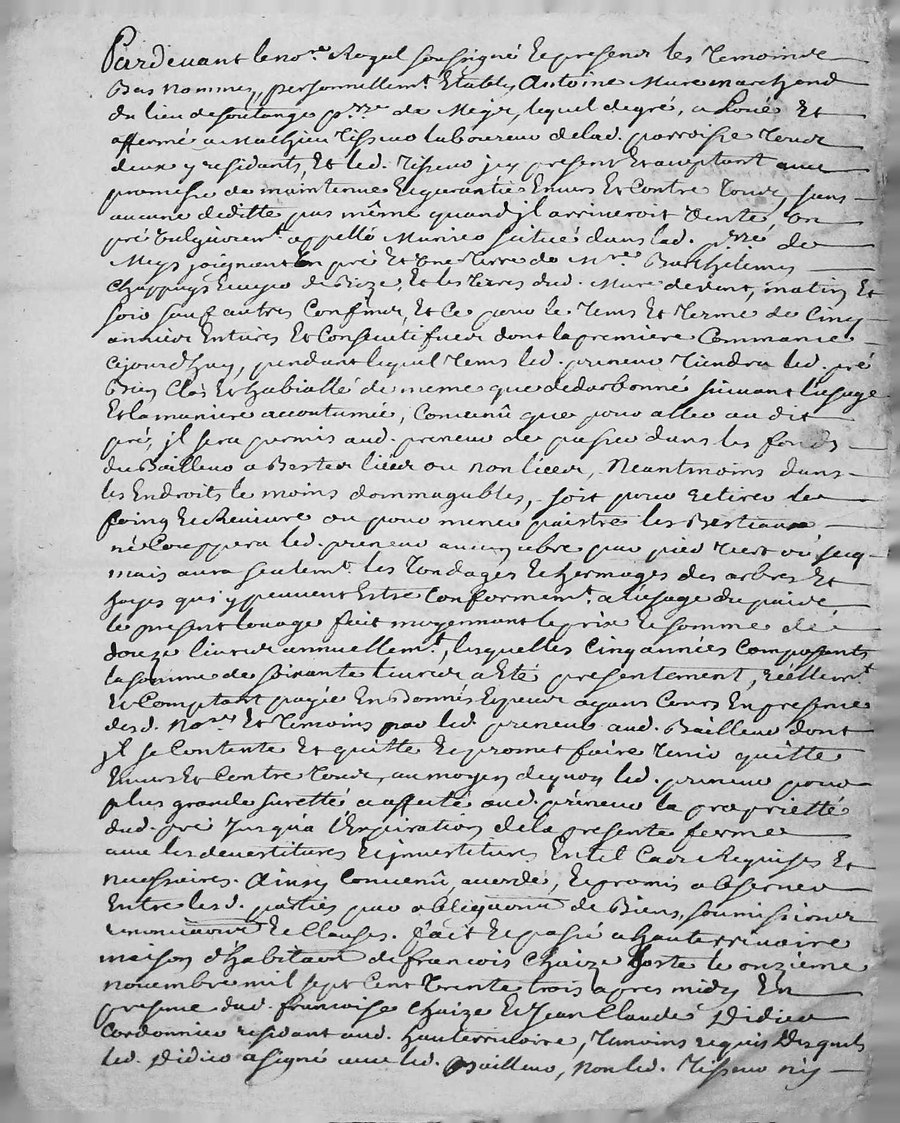 Pardevant le no.re Royal soussigné Et presens les Temoins
Bas nommés, personnellem.t Etably Antoine Mure marchand
du lieu de p.sse de Meys, lequel degré, a Loué Et
affermé a Mathieu Tisseur laboureur de lad. parroisse Tous
deux y residants, Et led. Tisseur icy present Et acceptant avec
promesse de maintenue Et garantie Envers Et Contre Tous, sans
aucune deditte pas même quand il arriveroit Vente, un
pré Vulgairem.t appellé situé dans lad. p.sse de
Meys joignant Un pré Et Une Terre de M.re Barthelemy
Chappuys Et les Terres dud. Mure devant, matin Et
soir sauf autres Confins, Et Ce pour le Tems Et Terme de Cinq
années Entieres Et Consecutifves dont la premiere Commance
cejourd'huy, pendant lequel Tems led. preneur Tiendra led. pré
Bien Clos Et de meme que suivant l'usage
Et la maniere accoutumée, Convenû que pour aller au dit
pré, il sera permis aud. preneur de passer dans les fonds
du Bailleur a Bestes liées ou non liées, Neantmoins dans
les Endroits le moins dommagables, soit pour retirer le
foing Et ou pour mener paistre les Bestiaux
ne Couppera led. preneur aucun arbre par pied Vert ou secq
mais aura seulem.t les Tondages Et Esmages des arbres Et
hayes qui y peuvent Estre Conformem.t a l'usage du païs
le present louage fait moyennant le prix Et somme de
douze livres annuellem.t, lesquelles Cinq années Composants
la somme de soixante livres a Eté presentement, réellem.t
Et Comptant payée En Bonnes Especes ayant Cours En presence
desd. No.re Et Temoins par led. preneur aud. Bailleur dont
il se Contente Et quitte Et promet faire Tenir quitte
Envers Et Contre Tous, au moyen dequoy led. preneur pour
plus grande suretté a affecté aud. preneur la proprietté
dud. pré Jusqu'a l'Expiration de la presente ferme
avec les devestitures Et investitures En tel Cas Requises Et
necessaires. Ainsy Convenû, accordé, Et promis observer
Entre lesd. parties par obligation de Biens, soumissions
renonciations Et Clauses. fait Et passé a hauterivoire
maison d'habitation de francois Chaize hoste le onzieme
novembre mil sept Cent Trente trois apres midy En
presence dud. francois Chaize Et Jean Claude Didier
Cordonnier residant aud. hauterivoire, Temoins requis Desquels
led. Didier a signé avec led. Bailleur, non led. Tisseur ny